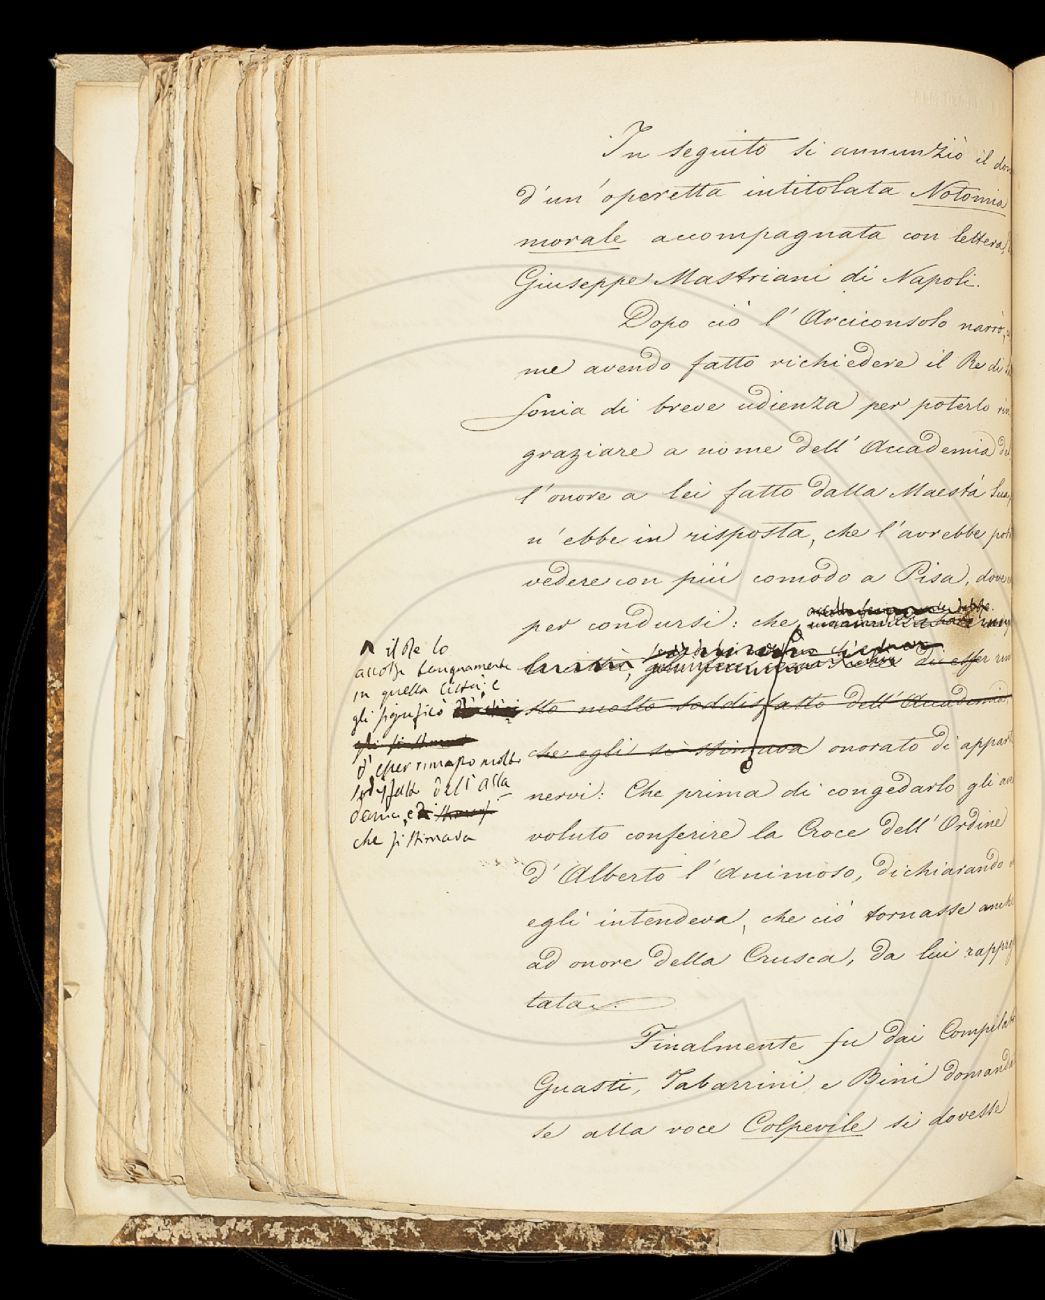 In seguito si annunziò il don
d'un'operetta intitolata Notomia
morale accompagnata con lettera
Giuseppe Mastriani di Napoli.
Dopo ciò l'Arciconsolo narrò,
me avendo fatto richiedere il Re di
sonia di breve udienza per poterlo rin
graziare a nome dell'Accademia del
l'onore a lei fatto dalla Maestà Sua,
n'ebbe in risposta, che l'avrebbe pot
vedere con più comodo a Pisa, dove
per condursi: che
di esser rim
sto molto soddisfatto dell'Accademia,
che egli si stimava onorato di appart
nervi: Che prima di congedarlo gli av
voluto conferire la Croce dell'Ordine
d'Alberto l'Animoso, dichiarando
egli intendeva, che ciò tornasse anch
ad onore della Crusca, da lui rappre
tata.
Finalmente fu dai Compilat
Guasti, Tabarrini, e Bini domand
se alla voce Colpevile si dovesse
il Re lo
accolse benignamente
in quella Città; e
gli significò
gli si stimava
d'esser rimasto molto
sodisfatto dell'Acca
demia, e
che si stimava